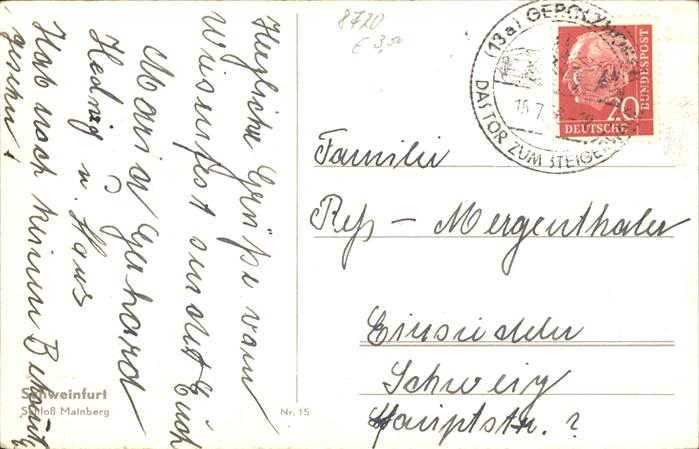 Herzliche Grüße vom
Wiesenfest sendet Euch
Marie u. Gerhard
Hedwig u. Hans
Hab noch keinen Bekannt.
gesehn!
Schweinfurt
Schloß Mainberg
Nr. 15
8720
€ 3,50
(13a) GEROLZHOFEN
15.7.
DAS TOR ZUM STEIGERWALD
20
DEUTSCHE
BUNDESPOST
Familie
Reß – Mergenthaler
Einsiedeln
Schweiz
Hauptstr. ?